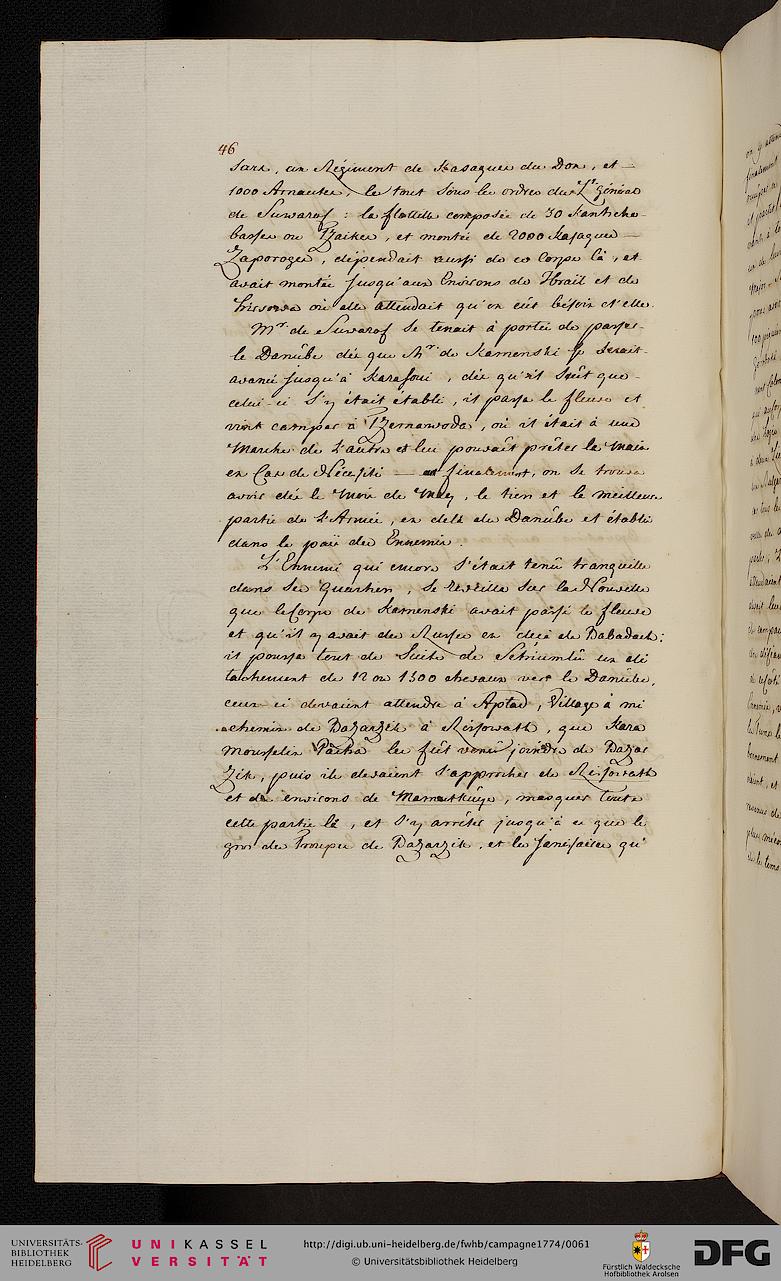 46
sars, un Régiment de Kasaques du Don, et
1000 Arnautes, le tout sous les ordres du Lt. Général
de Suwarof : la flottille composée de 30 Kantsche-
basses ou Tzaikes, et montée de 2000 Kasaques
Zaporoges, dépendait aussi de ce Corps là, et
avait montée jusqu'aux Environs de Ibrail et de
Hirsowa où elle attendait qu'on eût besoin d'elle.
Mr. de Suwarof se tenait à portée de passer
le Danübe dès que Mr. de Kamenski se serait
avancé jusqu'à Karasoui, dès qu'il sût que
celui-ci s'y était établi, il passa le fleuve et
vint camper à Tzernawoda, où il était à une
Marche de l'autre et lui pouvait prêter la Main
en Cas de Nécessité — finalement, on se trouva
avoir dès le Mois de May, le tiers et la meilleure
partie de l'Armée, en delà du Danübe et établie
dans le païs des Ennemis.
L'Ennemi qui encore s'était tenû tranquille
dans ses quartiers, se reveilla sur la Nouvelle
que le Corps de Kamenski avait passé le fleuve
et qu'il y avait des Russes en deça de Babadach;
il poussa tout de Suite de Schiumlü un dé
tachement de 12 ou 1500 chevaux vers le Danübe,
ceux-ci devaient attendre à Aptad, Village à mi
chemin de Bazarzik à Rissowath, que Kara
Mousselin Pacha les fût venû joindre de Bazar
Zik, puis ils devaient s'approcher de Rissowath
et des environs de Mamutkuyo, masquer toute
cette partie là, et s'y arrêter jusqu'à ce que le
gros des Troupes de Bazarzik, et les Janissaires qu'
UNIVERSITÄTS-
BIBLIOTHEK
HEIDELBERG
UNIKASSEL
VERSITÄT
http://digi.ub.uni-heidelberg.de/fwhb/campagne1774/0061
© Universitätsbibliothek Heidelberg
Fürstlich Waldecksche
Hofbibliothek Arolsen
DFG